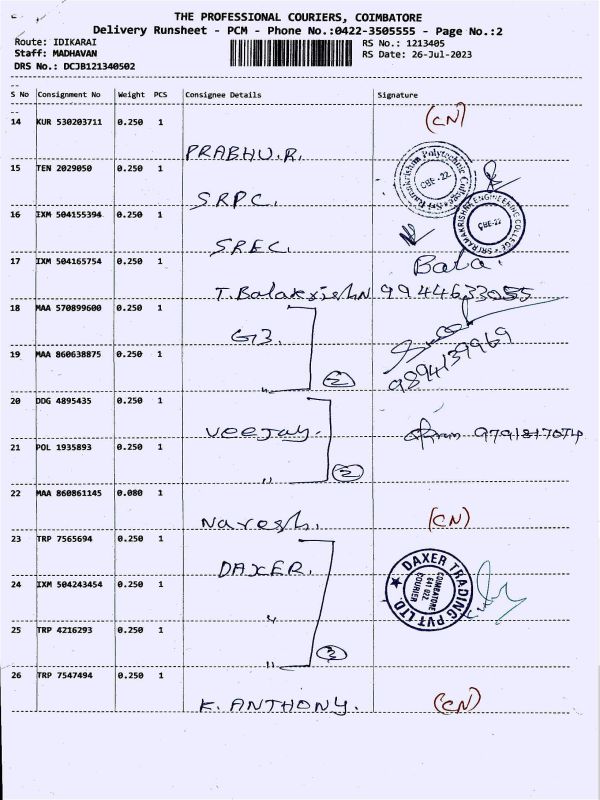 THE PROFESSIONAL COURIERS, COIMBATORE
Delivery Runsheet - PCM - Phone No.:0422-3505555 - Page No.:2
Route: IDIKARAI RS No.: 1213405
Staff: MADHAVAN RS Date: 26-Jul-2023
DRS No.: DCJB121340502
S No Consignment No Weight PCS Consignee Details Signature
14 KUR 530203711 0.250 1 (CN)
PRABHU.R.
15 TEN 2029050 0.250 1
Sri Ramakrishna Polytechnic College
CBE-22
SRPC.
16 IXM 504155394 0.250 1
SRI RAMAKRISHNA ENGINEERING COLLEGE
CBE-22
SREC.
17 IXM 504165754 0.250 1 Bala.
T.Balakrishn 9944633055
18 MAA 570899600 0.250 1
G3.
19 MAA 860638875 0.250 1 9894139969
" 2
20 DDG 4895435 0.250 1
Veejay. 9791817074
21 POL 1935893 0.250 1
" 2
22 MAA 860861145 0.080 1
Naresh. (CN)
23 TRP 7565694 0.250 1
DAXER.
DAXER TRADING PVT LTD.
COIMBATORE
641 022.
COURIER
24 IXM 504243454 0.250 1
"
25 TRP 4216293 0.250 1
" 3
26 TRP 7547494 0.250 1
K. ANTHONY. (CN)